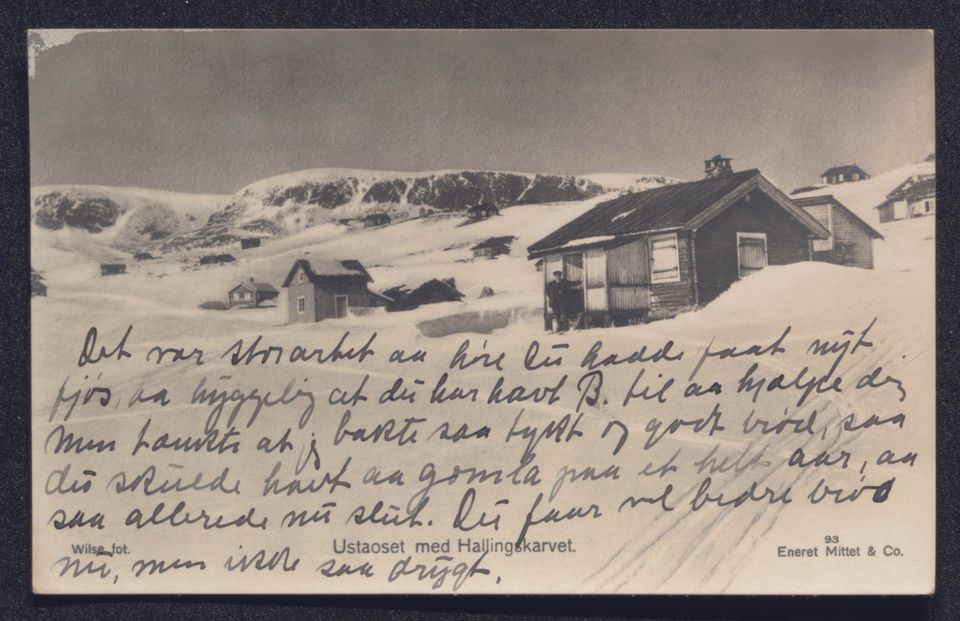 Det var storartet aa höre Du hadde faat nyt
fjös, aa hyggelig at du har havt B. til aa hjælpe dig
Men tænkte at jeg bakte saa tykt og godt bröd, saa
du skulde havt aa gomla paa et helt aar, aa
saa allerede nu slut. Du faar vel bedre bröd
nu, men ikke saa drygt.
Wilse fot.
Ustaoset med Hallingskarvet.
93
Eneret Mittet & Co.